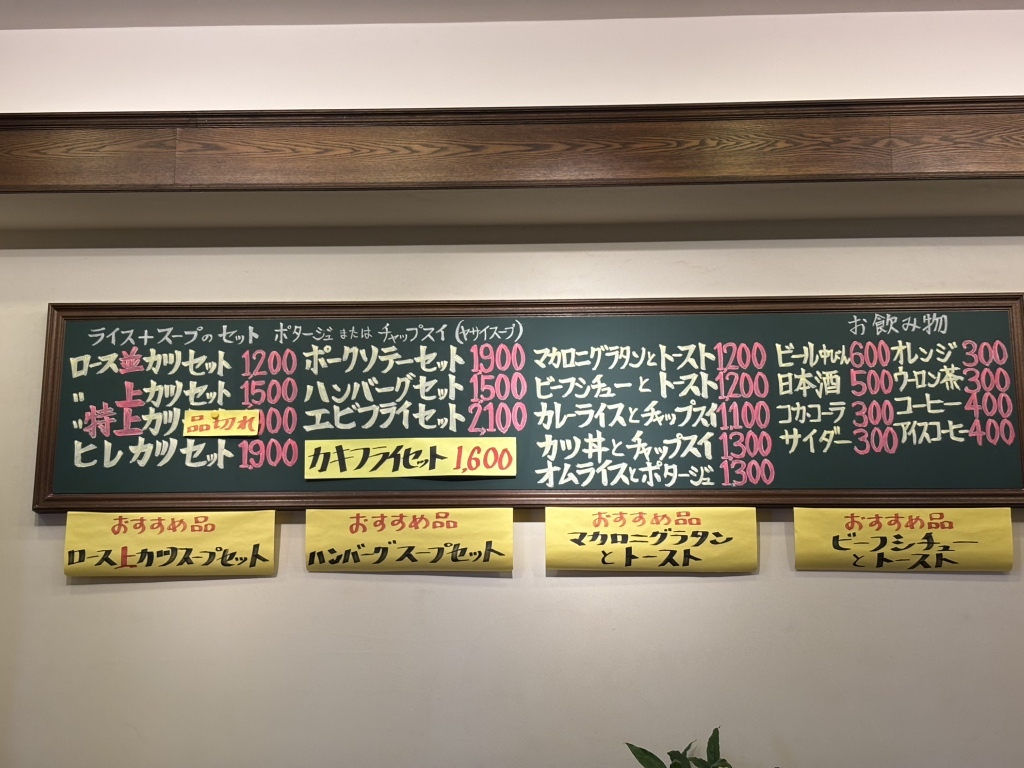 ライス+スープのセット ポタージュ または チャップスイ(ヤサイスープ)
ロース並カツセット 1,200
〃 上カツセット 1500
〃特上カツ 品切れ 00
ヒレカツセット 1,900
ポークソテーセット 1,900
ハンバーグセット 1,500
エビフライセット 2,100
カキフライセット 1,600
マカロニグラタンとトースト 1200
ビーフシチューとトースト 1200
カレーライスとチャップスイ 1,100
カツ丼とチャップスイ 1300
オムライスとポタージュ 1300
お飲み物
ビール中びん 600
日本酒 500
コカコーラ 300
サイダー 300
オレンジ 300
ウーロン茶 300
コーヒー 400
アイスコーヒ 400
おすすめ品
ロース上カツスープセット
おすすめ品
ハンバーグスープセット
おすすめ品
マカロニグラタン
とトースト
おすすめ品
ビーフシチュー
とトースト